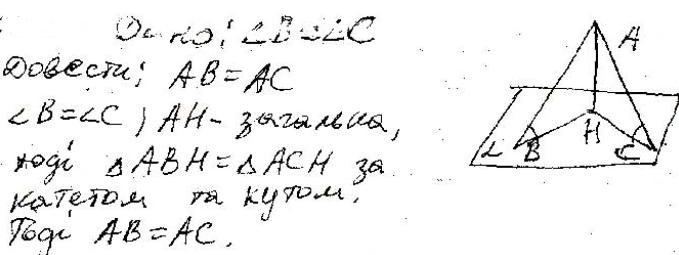 ∠B=∠C
Довести; AB=AC
∠B=∠C, AH- загальна,
тоді △ABH=△ACH за
катетом та кутом.
Тоді AB=AC.
A
H
B
C